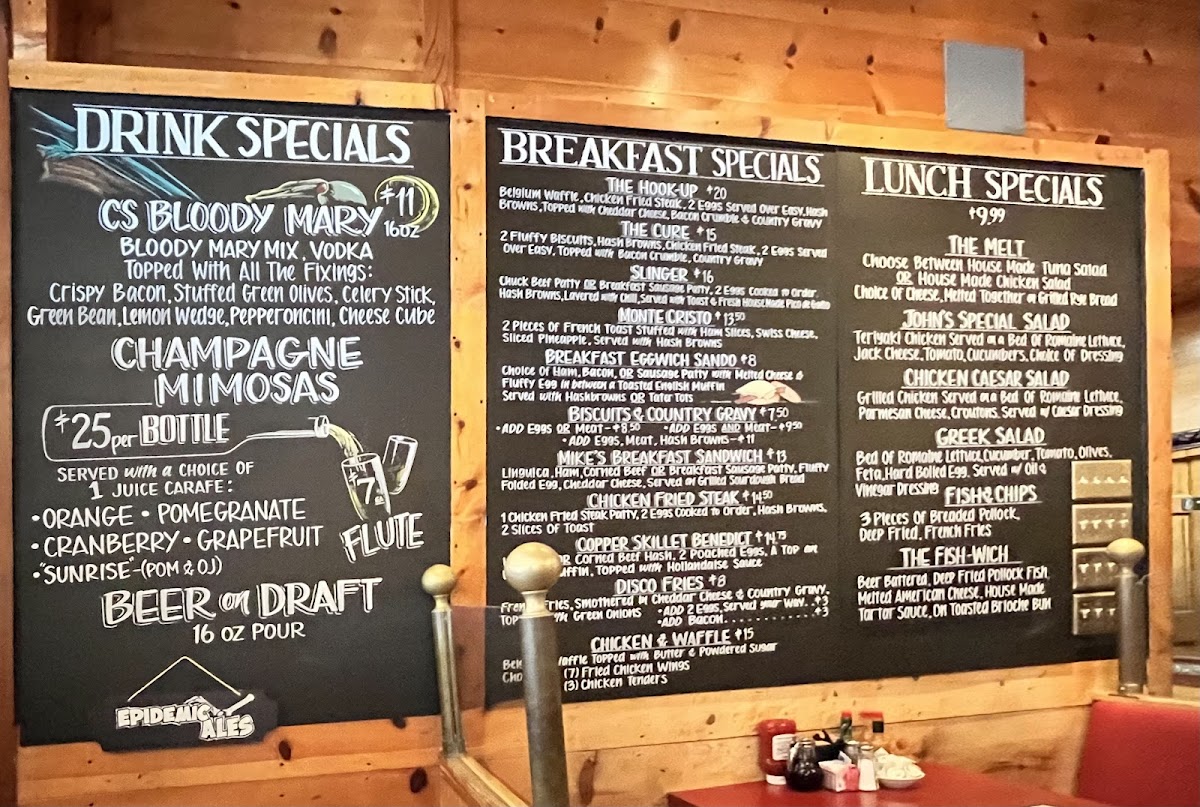 DRINK SPECIALS
CS BLOODY MARY
$11
16oz
BLOODY MARY MIX, VODKA
Topped With All The Fixings:
Crispy Bacon, Stuffed Green Olives, Celery Stick,
Green Bean, Lemon Wedge, Pepperoncini, Cheese Cube
CHAMPAGNE
MIMOSAS
$25 per BOTTLE
$7
FLUTE
SERVED with a CHOICE OF
1 JUICE CARAFE:
• ORANGE • POMEGRANATE
• CRANBERRY • GRAPEFRUIT
• "SUNRISE" - (POM & OJ)
BEER on DRAFT
16 oz POUR
EPIDEMIC
ALES
BREAKFAST SPECIALS
THE HOOK-UP $20
Belgium Waffle, Chicken Fried Steak, 2 Eggs Served Over Easy, Hash
Browns, Topped with Cheddar Cheese, Bacon Crumble & Country Gravy
THE CURE $15
2 Fluffy Biscuits, Hash Browns, Chicken Fried Steak, 2 Eggs Served
Over Easy, Topped with Bacon Crumble, Country Gravy
SLINGER $16
Chuck Beef Patty OR Breakfast Sausage Patty, 2 Eggs Cooked to Order,
Hash Browns, Layered with Chili, Served with Toast & Fresh House Made Pico de Gallo
MONTE CRISTO $13.50
2 Pieces of French Toast Stuffed with Ham Slices, Swiss Cheese,
Sliced Pineapple, Served with Hash Browns
BREAKFAST EGGWICH SANDO $8
Choice Of Ham, Bacon, OR Sausage Patty with Melted Cheese &
Fluffy Egg in between a Toasted English Muffin
Served with Hashbrowns OR Tater Tots
BISCUITS & COUNTRY GRAVY $7.50
• ADD Eggs OR Meat - $8.50 • ADD Eggs AND Meat - $9.50
• ADD Eggs, Meat, Hash Browns - $11
MIKE'S BREAKFAST SANDWICH $13
Linguica, Ham, Corned Beef OR Breakfast Sausage Patty, Fluffy
Folded Egg, Cheddar Cheese, Served on Grilled Sourdough Bread
CHICKEN FRIED STEAK $14.50
1 Chicken Fried Steak Patty, 2 Eggs Cooked to Order, Hash Browns,
2 Slices Of Toast
COPPER SKILLET BENEDICT $14.75
OR Corned Beef Hash, 2 Poached Eggs, A Top an
Topped with Hollandaise Sauce
DISCO FRIES $8
Fries, Smothered in Cheddar Cheese & Country Gravy,
with Green Onions • ADD 2 Eggs, Served your Way.. $3
• ADD Bacon............. $3
CHICKEN & WAFFLE $15
Waffle Topped with Butter & Powdered Sugar
(7) Fried Chicken Wings
(3) Chicken Tenders
LUNCH SPECIALS
$9.99
THE MELT
Choose Between House Made Tuna Salad
OR House Made Chicken Salad
Choice Of Cheese, Melted Together on Grilled Rye Bread
JOHN'S SPECIAL SALAD
Teriyaki Chicken Served on a Bed Of Romaine Lettuce,
Jack Cheese, Tomato, Cucumbers, Choice Of Dressing
CHICKEN CAESAR SALAD
Grilled Chicken Served on a Bed Of Romaine Lettuce,
Parmesan Cheese, Croutons, Served w/ Caesar Dressing
GREEK SALAD
Bed Of Romaine Lettuce, Cucumber, Tomato, Olives,
Feta, Hard Boiled Egg, Served w/ Oil &
Vinegar Dressing
FISH & CHIPS
3 Pieces Of Breaded Pollock,
Deep Fried, French Fries
THE FISH-WICH
Beer Battered, Deep Fried Pollock Fish,
Melted American Cheese, House Made
Tartar Sauce, On Toasted Brioche Bun